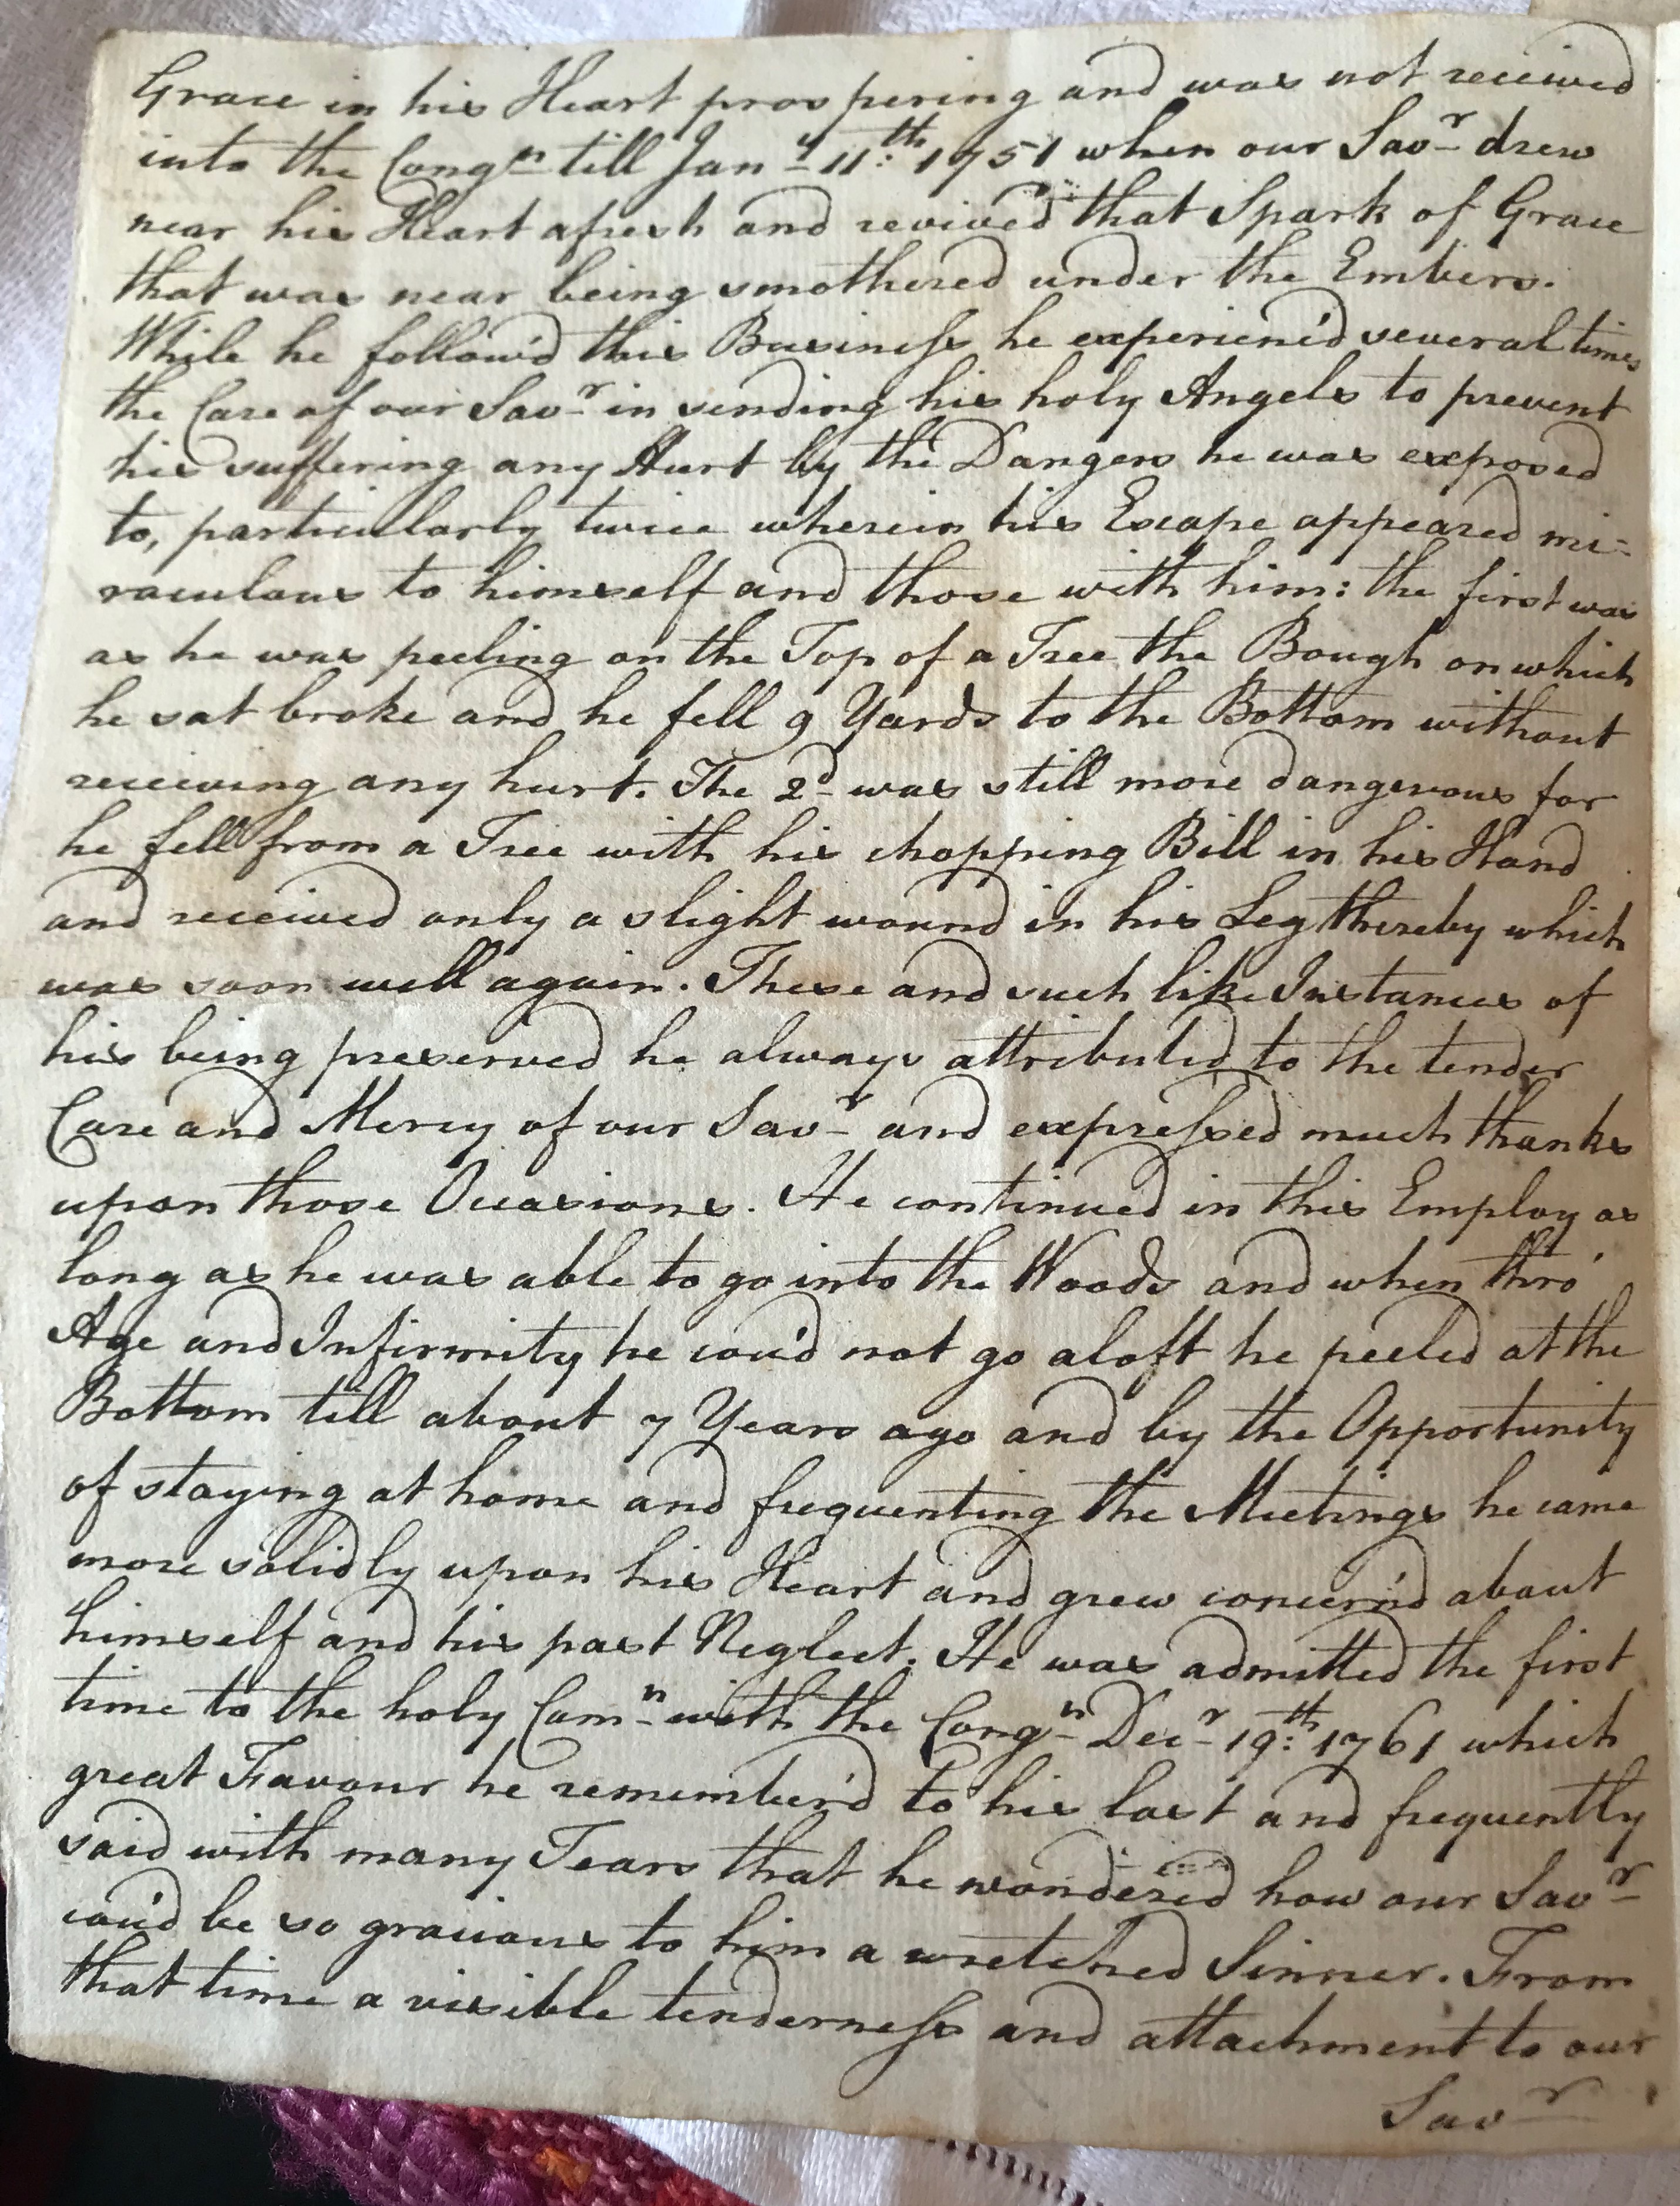 Grace in his Heart prospering and was not received
into the Congn till Jany 11th: 1751 when our Savr drew
near his Heart afresh and revived that Spark of Grace
that was near being smothered under the Embers.
While he follow'd this Business he experienc'd several times
the Care of our Savr in sending his holy Angels to prevent
his suffering any Hurt by the Dangers he was exposed
to, particularly twice wherein his Escape appeared mi-
raculous to himself and those with him: the first was
as he was peeling on the Top of a Tree the Bough on which
he sat broke and he fell 9 Yards to the Bottom without
receiving any hurt. The 2d was still more dangerous for
he fell from a Tree with his chopping Bill in his Hand
and received only a slight wound in his Leg thereby which
was soon well again. These and such like Instances of
his being preserved he always attributed to the tender
Care and Mercy of our Savr and expressed much thanks
upon those Occasions. He continued in this Employ as
long as he was able to go into the Woods and when thro'
Age and Infirmity he cou'd not go aloft he peeled at the
Bottom till about 7 Years ago and by the Opportunity
of staying at home and frequenting the Meetings he came
more solidly upon his Heart and grew concern'd about
himself and his past Neglect. He was admitted the first
time to the holy Comn with the Congn Decr 19th: 1761 which
great Favour he remember'd to his last and frequently
said with many Tears that he wondered how our Savr
cou'd be so gracious to him a wretched Sinner. From
that time a visible tenderness and attachment to our
Savr